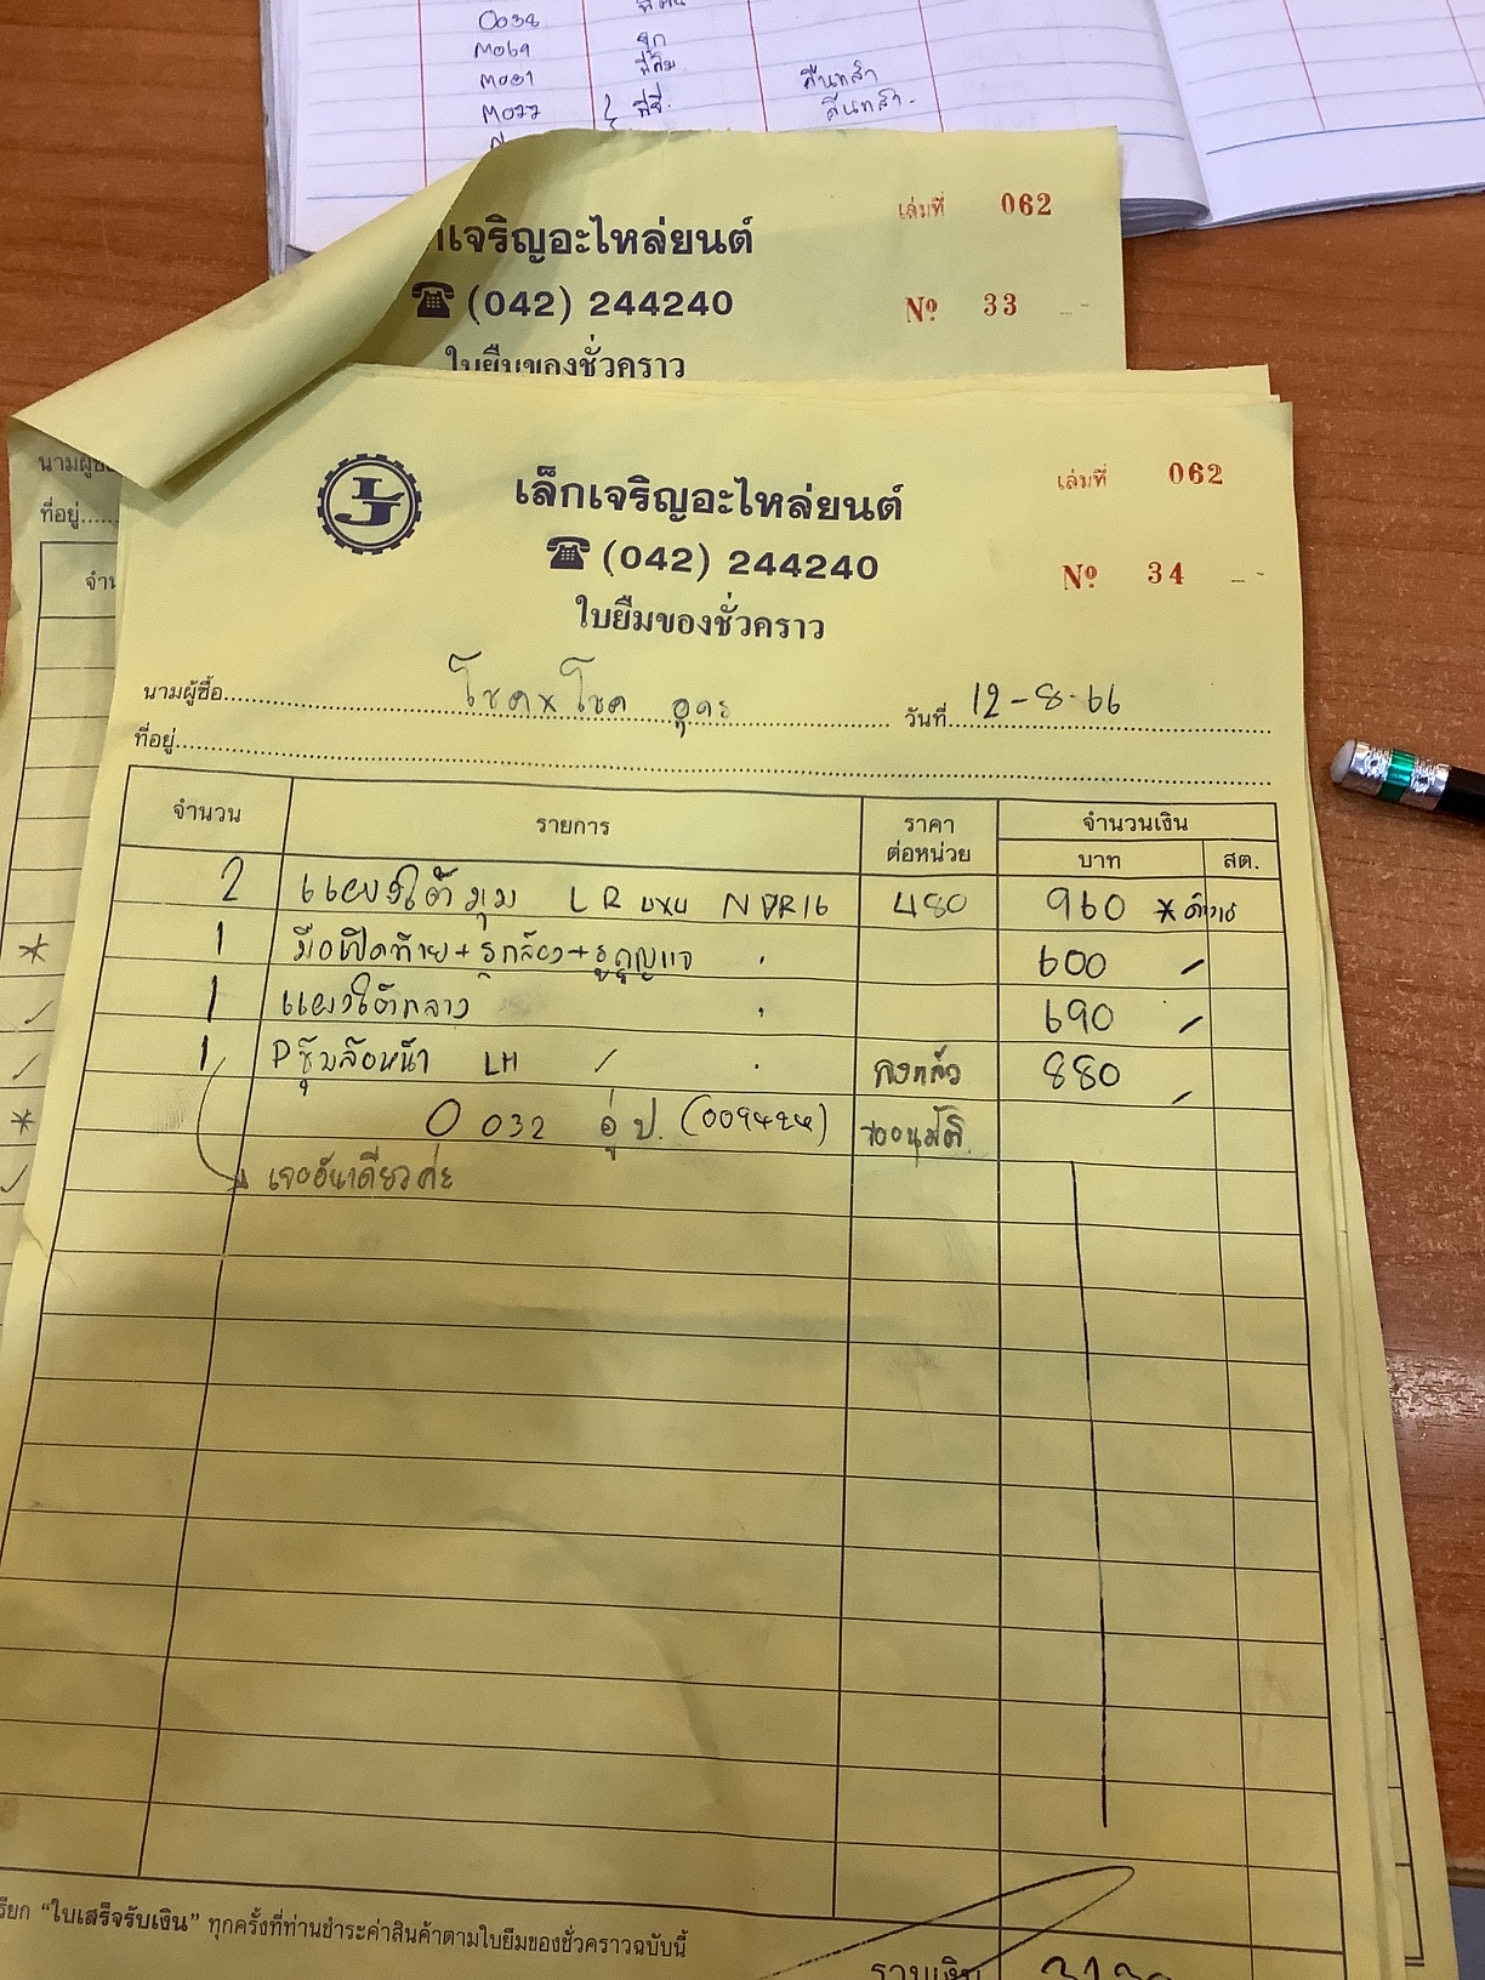 0038
M069
M031
M077
คืนแล้ว
คืนแล้ว.
เจริญอะไหล่ยนต์
เล่มที่ 062
(042) 244240
Nº 33
ใบยืมของชั่วคราว
นามผู้ซื้อ
ที่อยู่
LJ
เล็กเจริญอะไหล่ยนต์
เล่มที่ 062
(042) 244240
Nº 34
ใบยืมของชั่วคราว
นามผู้ซื้อ โชค x โชค อุดร วันที่ 12-8-66
ที่อยู่
จำนวน รายการ ราคาต่อหน่วย จำนวนเงิน
บาท สต.
2 แผงใต้มุม LR 4x4 NDR16 480 960
1 มือเปิดท้าย+รูกล้อง+รูกุญแจ 600
1 แผงใต้กลาง 690
1 Pซุ้มล้อหน้า LH / 880
0032 อู่ ป. รออนุมัติ
เจออันเดียวค่ะ
เรียก "ใบเสร็จรับเงิน" ทุกครั้งที่ท่านชำระค่าสินค้าตามใบยืมของชั่วคราวฉบับนี้
รวมเงิน 3130